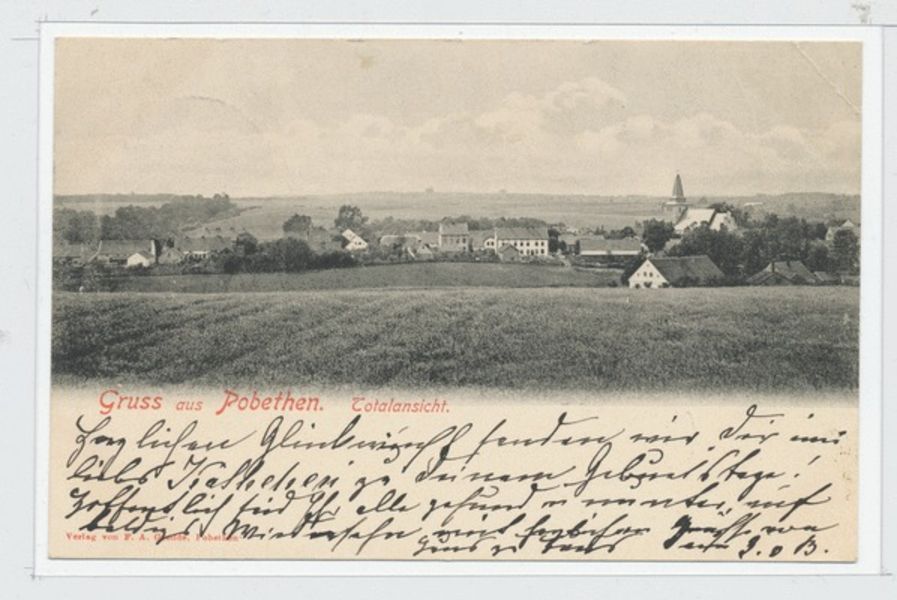 Gruss aus Pobethen. Totalansicht.
Herzlichen Glückwunsch senden wir Dir
liebs Kathchen zu Deinem Geburtstage!
Hoffentlich sind Ihr alle gesund u munter, auf
baldiges Wiedersehn mit herzlichen Grüsse von
Haus zu Haus
Verlag von F. A. Pobethen